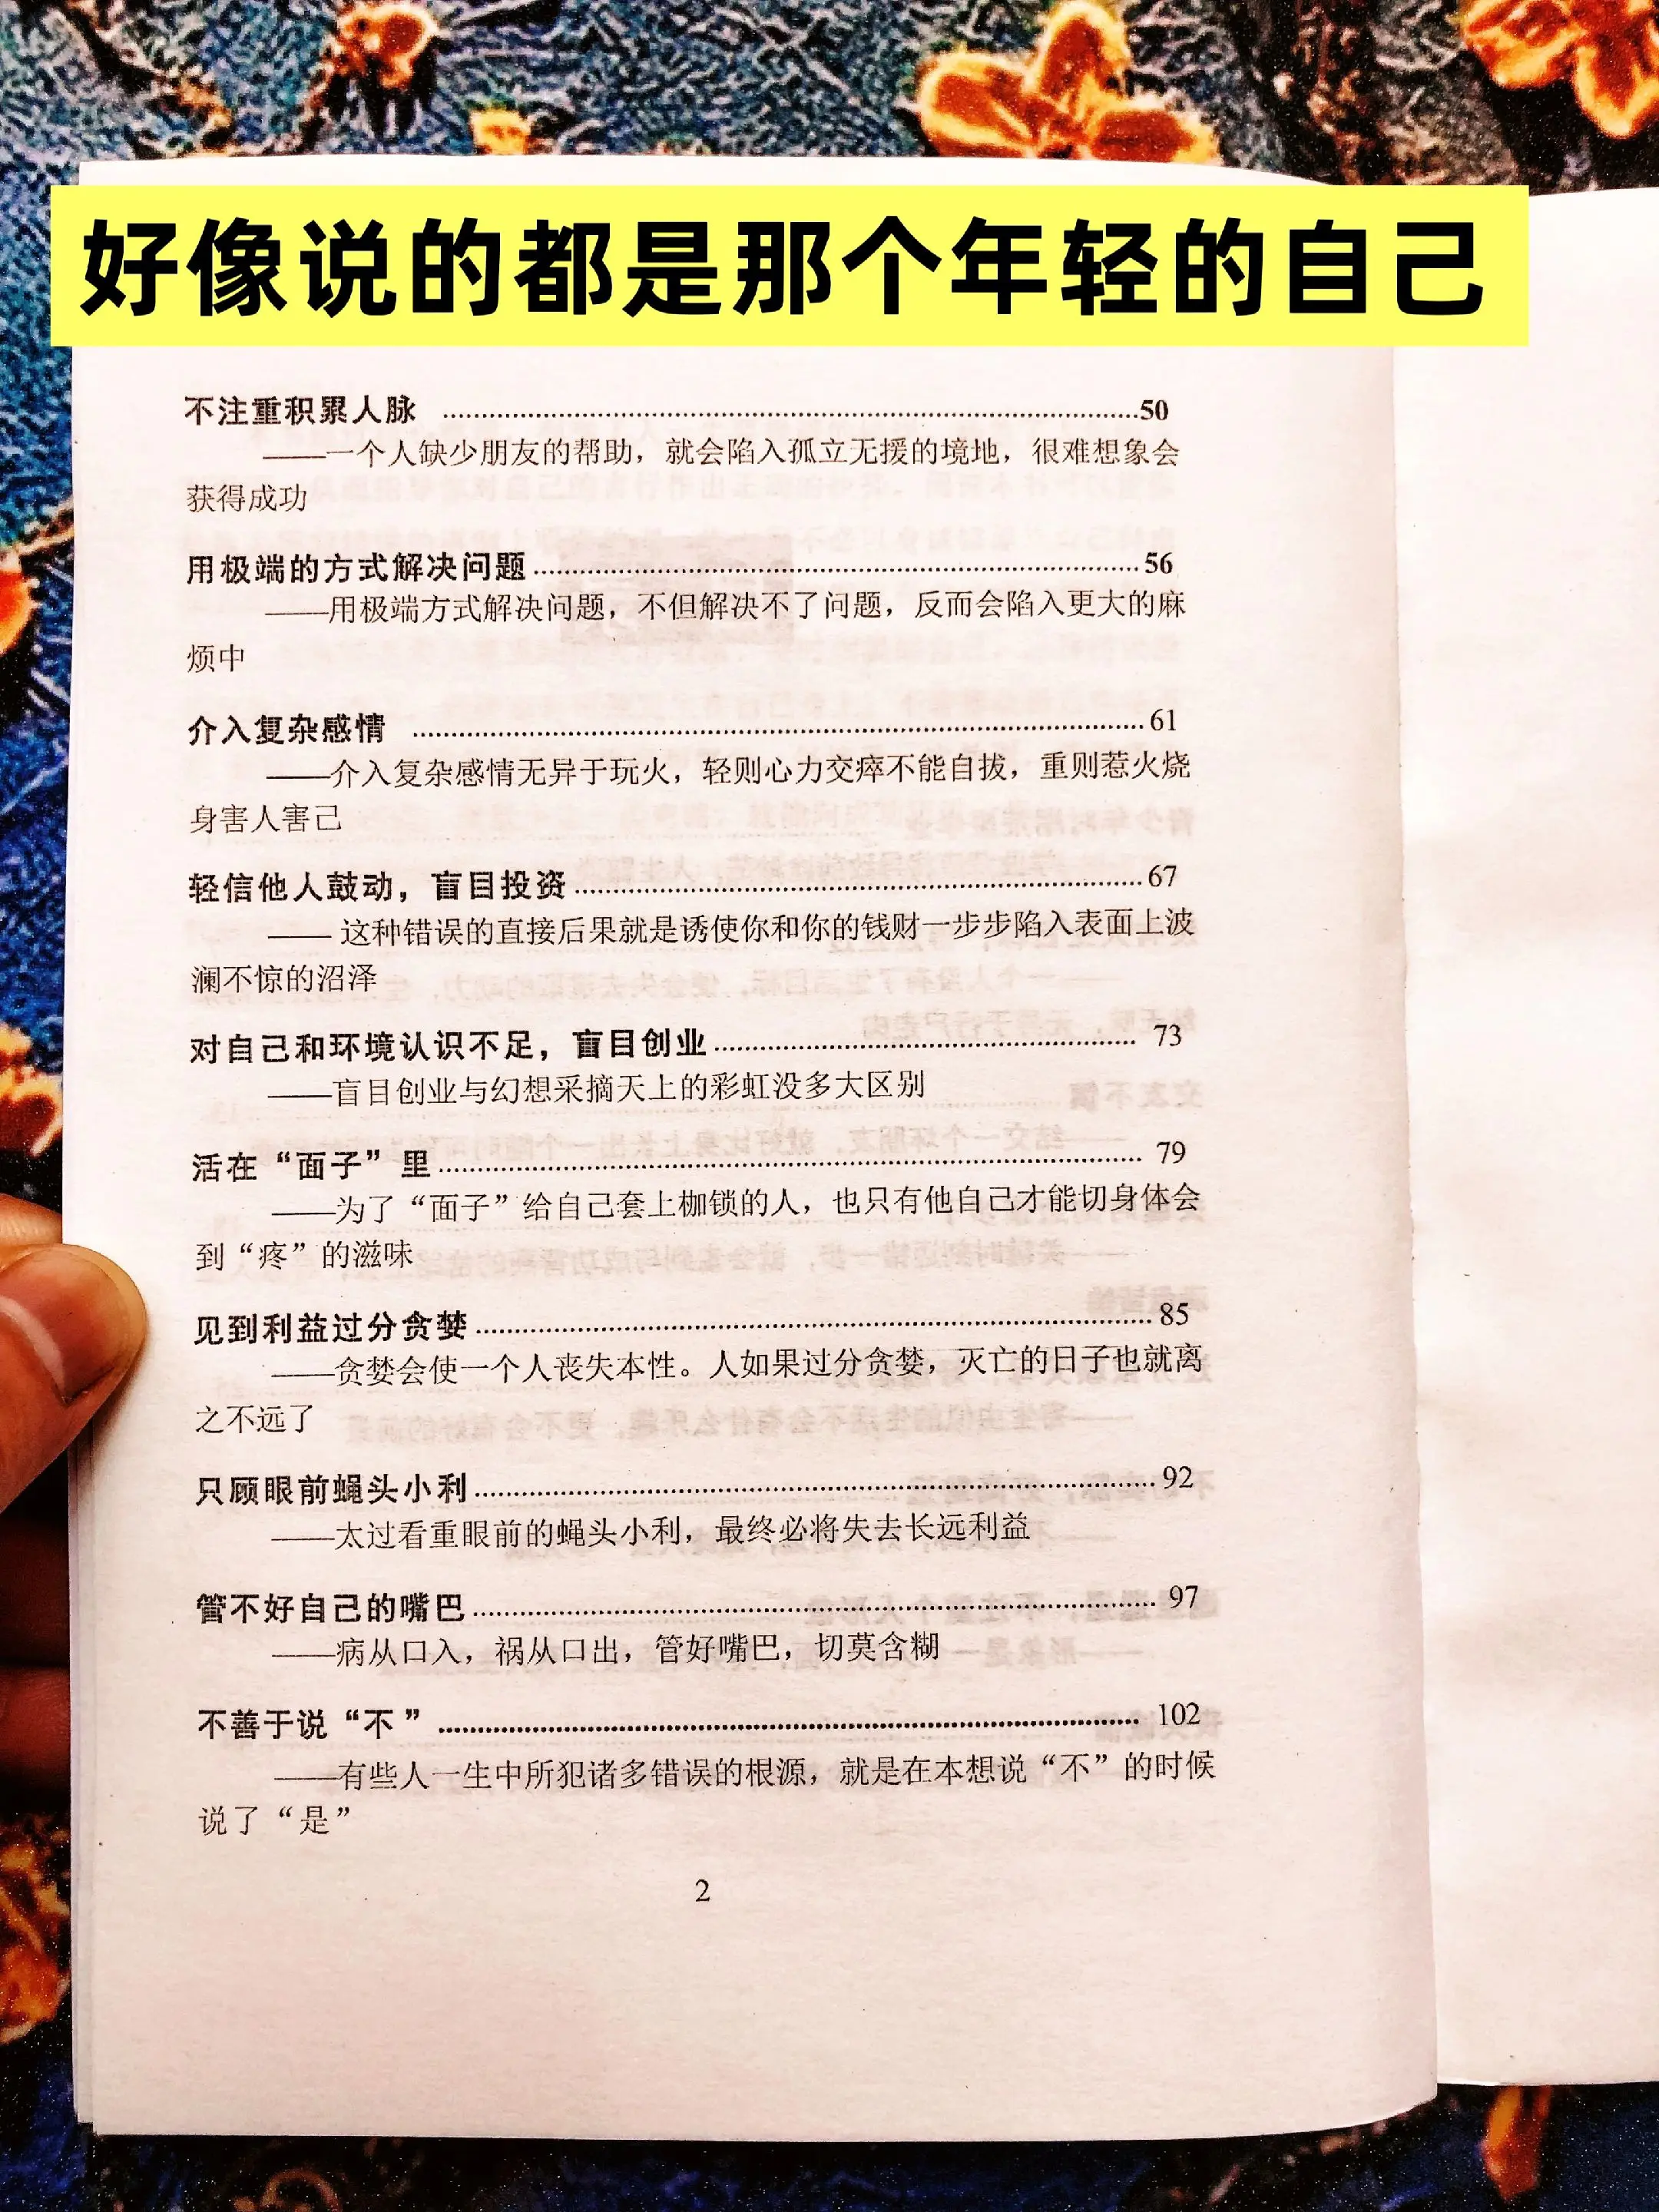 好像说的都是那个年轻的自己
不注重积累人脉 ……………………………………50
——一个人缺少朋友的帮助，就会陷入孤立无援的境地，很难想象会
获得成功
用极端的方式解决问题……………………………………56
——用极端方式解决问题，不但解决不了问题，反而会陷入更大的麻
烦中
介入复杂感情 ……………………………………61
——介入复杂感情无异于玩火，轻则心力交瘁不能自拔，重则惹火烧
身害人害己
轻信他人鼓动，盲目投资……………………………………67
—— 这种错误的直接后果就是诱使你和你的钱财一步步陷入表面上波
澜不惊的沼泽
对自己和环境认识不足，盲目创业…………………………… 73
——盲目创业与幻想采摘天上的彩虹没多大区别
活在“面子”里…………………………………… 79
——为了“面子”给自己套上枷锁的人，也只有他自己才能切身体会
到“疼”的滋味
见到利益过分贪婪……………………………………85
——贪婪会使一个人丧失本性。人如果过分贪婪，灭亡的日子也就离
之不远了
只顾眼前蝇头小利……………………………………92
——太过看重眼前的蝇头小利，最终必将失去长远利益
管不好自己的嘴巴…………………………………… 97
——病从口入，祸从口出，管好嘴巴，切莫含糊
不善于说“不”…………………………………… 102
——有些人一生中所犯诸多错误的根源，就是在本想说“不”的时候
说了“是”
2